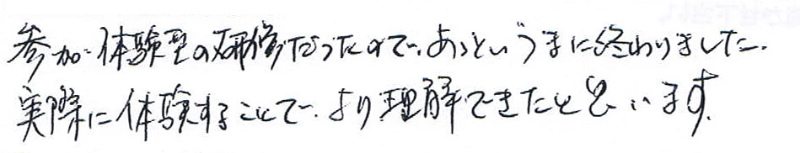 参加・体験型の研修だったので、あっというまに終わりました。
実際に体験することで、より理解できたと思います。